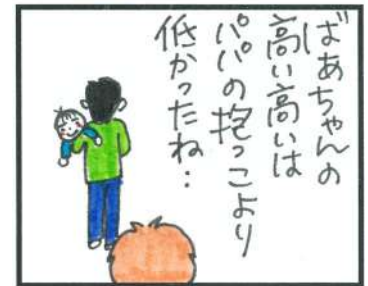 ばあちゃんの
高い高いは
パパの抱っこより
低かったね…